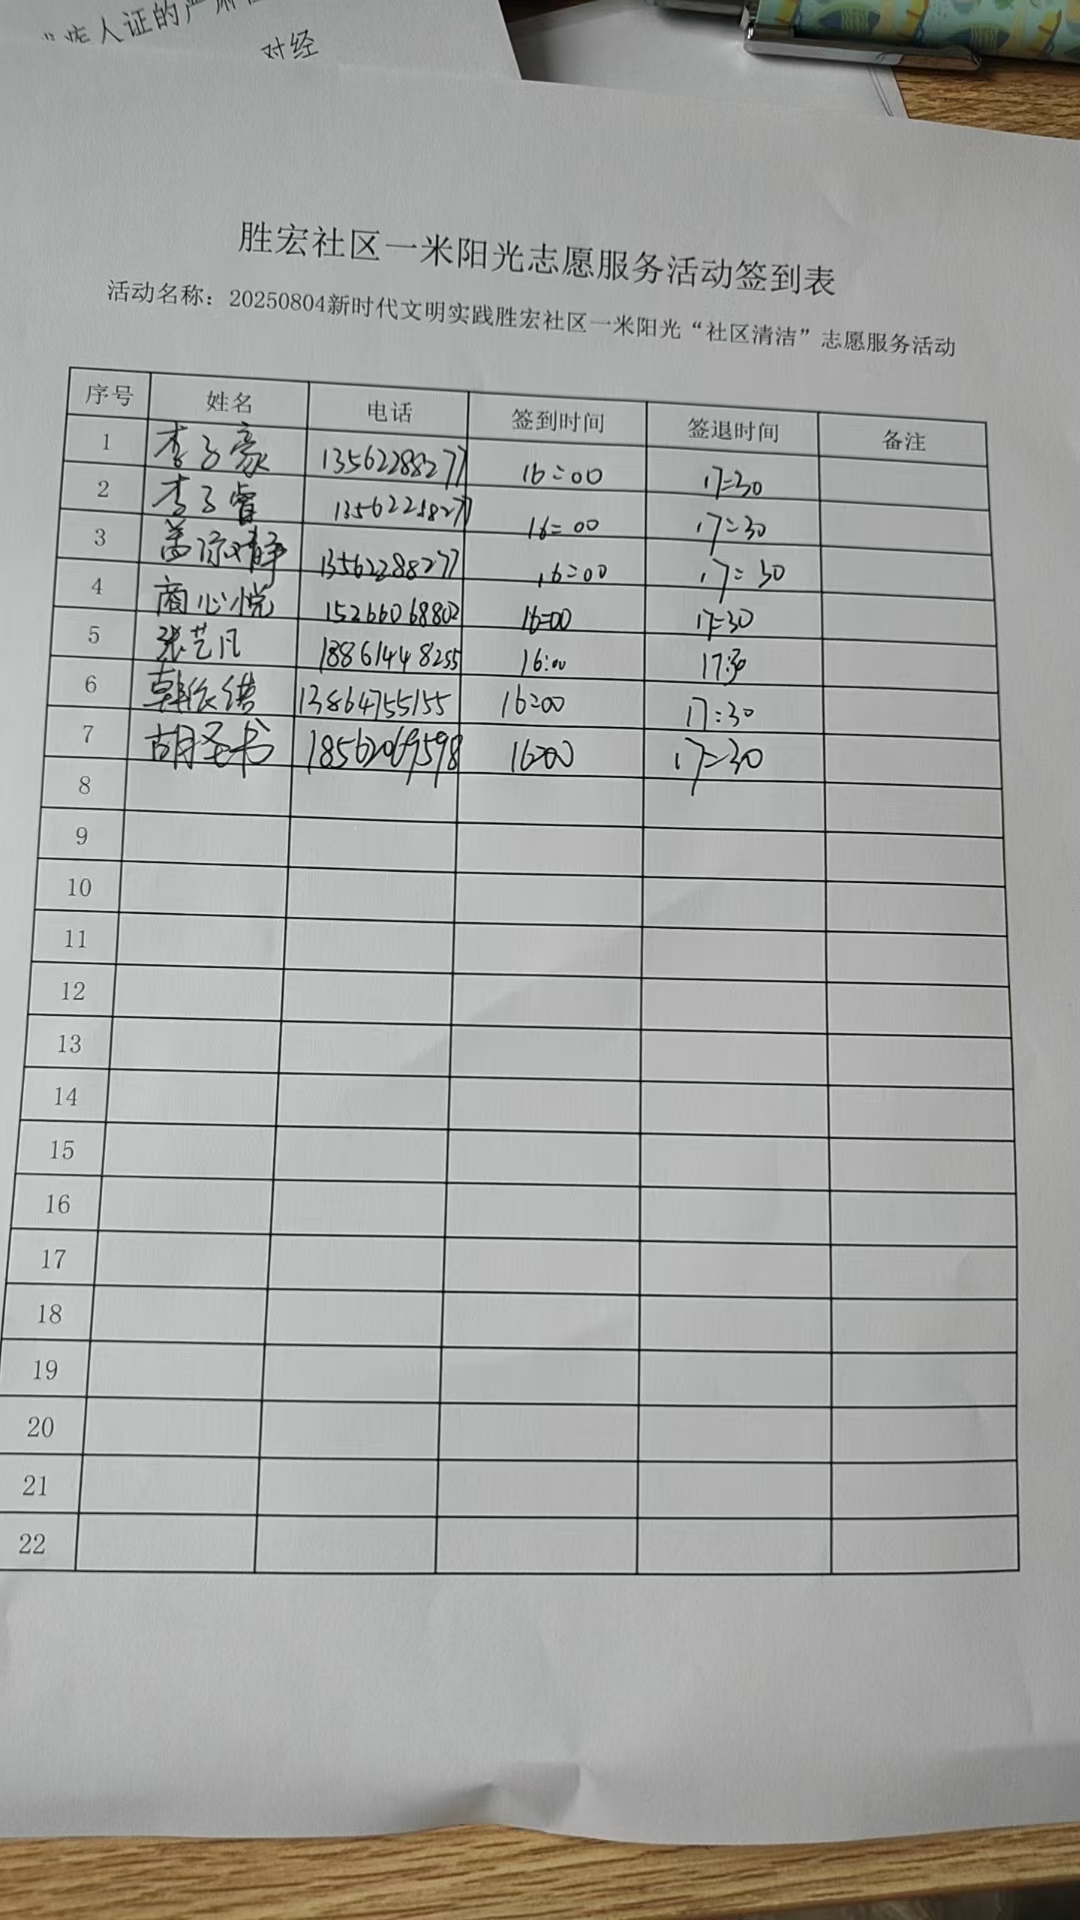 疾人证的严肃
对经
胜宏社区一米阳光志愿服务活动签到表
活动名称：20250804新时代文明实践胜宏社区一米阳光“社区清洁”志愿服务活动
序号 姓名 电话 签到时间 签退时间 备注
1 李子豪 13562288277 16:00 17:30
2 李子睿 13562258277 16:00 17:30
3 13562288277 16:00 17:30
4 商心悦 15266068802 16:00 17:30
5 张艺凡 18861448255 16:00 17:30
6 韩依诺 13864755155 16:00 17:30
7 胡圣书 18562069598 16:00 17:30
8
9
10
11
12
13
14
15
16
17
18
19
20
21
22